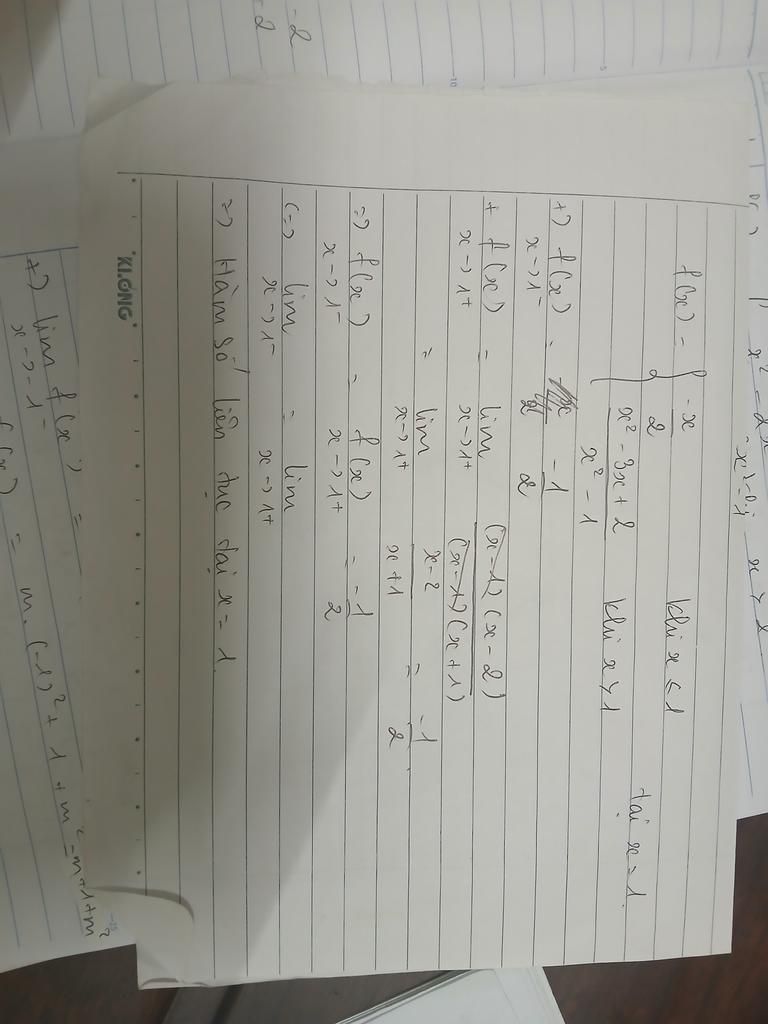 f(x) = { -x/2 khi x ≤ 1
x² - 3x + 2 / x² - 1 khi x > 1 tại x = 1.
+) f(x) x→1⁻ = -1/2
+ f(x) x→1⁺ = lim x→1⁺ (x-1)(x-2) / (x-1)(x+1)
= lim x→1⁺ x-2 / x+1 = -1/2.
=) f(x) x→1⁻ = f(x) x→1⁺ = -1/2
(=) lim x→1⁻ = lim x→1⁺
=) Hàm số liên tục tại x = 1.
KLONG
+) lim f(x) = x→-1⁻
f(x) = m.(-1)² + 1 + m² = m+1+m²